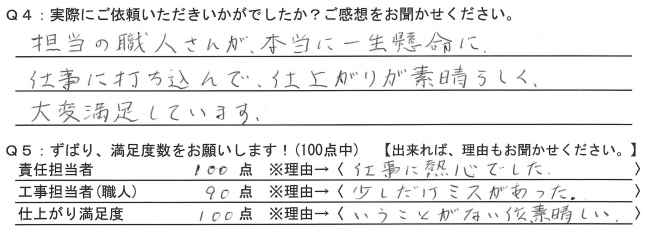 Q4：実際にご依頼いただきいかがでしたか？ご感想をお聞かせください。
担当の職人さんが、本当に一生懸命に、
仕事に打ち込んで、仕上がりが素晴らしく、
大変満足しています。
Q5：ずばり、満足度数をお願いします！(100点中) 【出来れば、理由もお聞かせください。】
責任担当者 100 点 ※理由→〈 仕事に熱心でした。 〉
工事担当者(職人) 90 点 ※理由→〈 少しだけミスがあった。 〉
仕上がり満足度 100 点 ※理由→〈 いうことがない位素晴しい。 〉